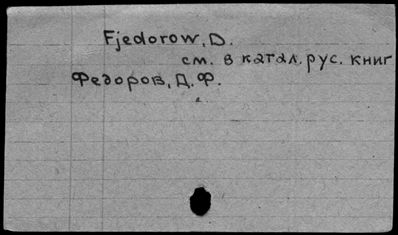 Fjedorow, D.
см. в катал. рус. книг
Федоров, Д. Ф.